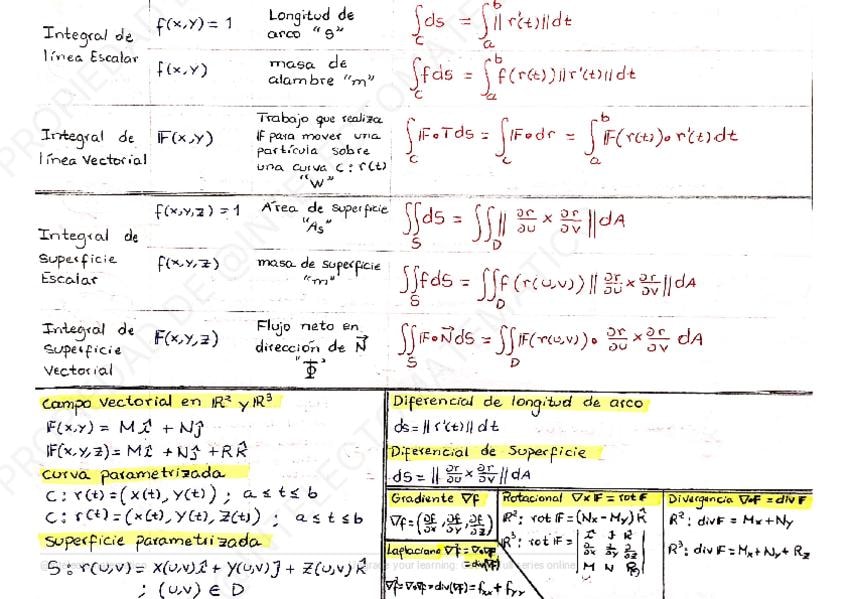 Integral de
línea Escalar
f(x,y) = 1
Longitud de
arco "S"
∫_C ds = ∫_a^b ||r'(t)||dt
f(x,y)
masa de
alambre "m"
∫_C fds = ∫_a^b f(r(t))||r'(t)||dt
Integral de
línea Vectorial
F(x,y)
Trabajo que realiza
F para mover una
partícula sobre
una curva C: r(t)
"W"
∫_C F∘Tds = ∫_C F∘dr = ∫_a^b F(r(t))∘r'(t)dt
Integral de
Superficie
Escalar
f(x,y,z) = 1
Área de superficie
"As"
∬_S dS = ∬_D || ∂r/∂u × ∂r/∂v ||dA
f(x,y,z)
masa de superficie
"m"
∬_S fdS = ∬_D f(r(u,v))|| ∂r/∂u × ∂r/∂v ||dA
Integral de
Superficie
Vectorial
F(x,y,z)
Flujo neto en
dirección de N⃗
"Φ"
∬_S F∘N⃗dS = ∬_D F(r(u,v))∘ ∂r/∂u × ∂r/∂v dA
Campo vectorial en R² y R³
F(x,y) = Mî + Nĵ
F(x,y,z) = Mî + Nĵ + Rk̂
Curva parametrizada
C: r(t) = (x(t), y(t)) ; a ≤ t ≤ b
C: r(t) = (x(t), y(t), z(t)) ; a ≤ t ≤ b
Superficie parametrizada
S: r(u,v) = x(u,v)î + y(u,v)ĵ + z(u,v)k̂
; (u,v) ∈ D
Diferencial de longitud de arco
ds = ||r'(t)||dt
Diferencial de Superficie
dS = || ∂r/∂u × ∂r/∂v ||dA
Gradiente ∇f
∇f = (∂f/∂x, ∂f/∂y, ∂f/∂z)
Laplaciano ∇²f = ∇∘∇f
= div(∇f)
∇²f = ∇∘∇f = div(∇f) = fxx + fyy
Rotacional ∇×F = rot F
R²: rot F = (Nx - My)k̂
R³: rot F = | î ĵ k̂ |
∂/∂x ∂/∂y ∂/∂z
M N R
Divergencia ∇∘F = div F
R²: div F = Mx + Ny
R³: div F = Mx + Ny + Rz